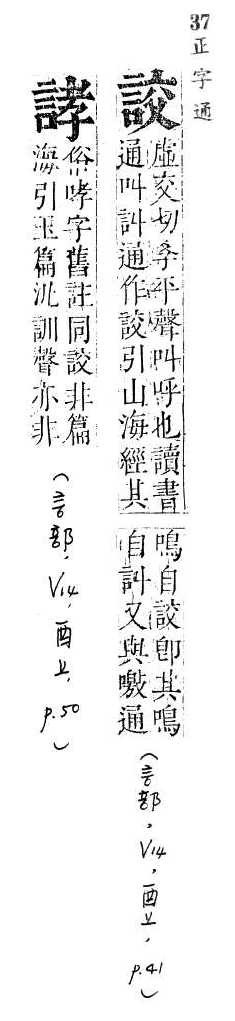 37 正字通
詨
虛交切孝平聲叫呼也讀書
通叫訆通作詨引山海經其
鳴自詨卽其鳴
自訆又與噭通
(言部, V14, 酉上, p.41)
誟
俗哮字舊註同詨非篇
海引玉篇汎訓聲亦非
(言部, V14, 酉上, p.50)